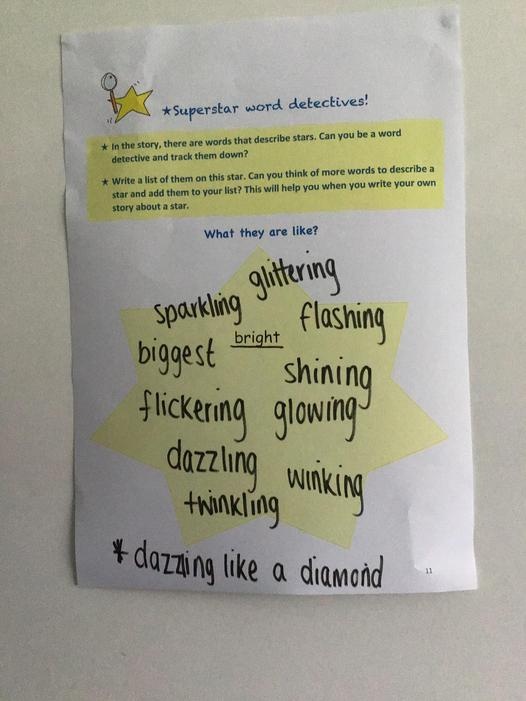 ★Superstar word detectives!
★ In the story, there are words that describe stars. Can you be a word
detective and track them down?
★ Write a list of them on this star. Can you think of more words to describe a
star and add them to your list? This will help you when you write your own
story about a star.
What they are like?
glittering
sparkling
flashing
bright
biggest
shining
flickering glowing
dazzling
winking
twinkling
* dazzling like a diamond
11